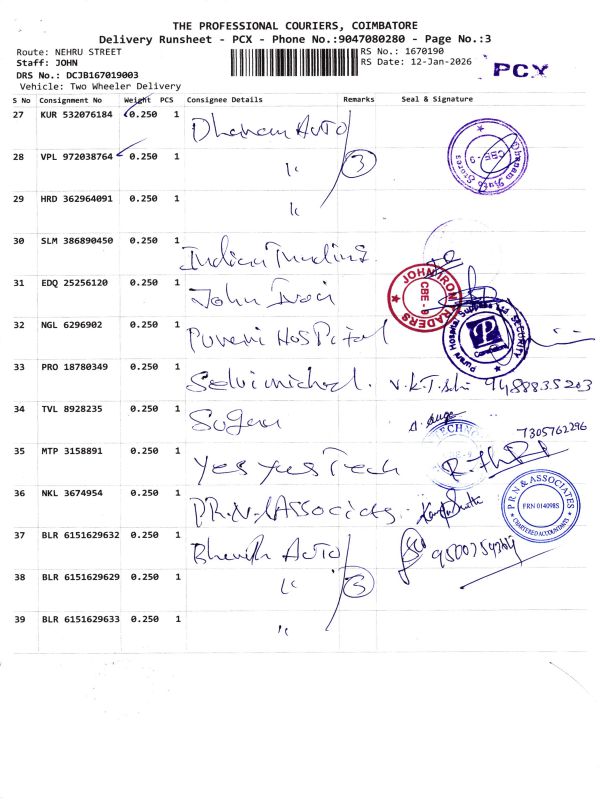 THE PROFESSIONAL COURIERS, COIMBATORE
Delivery Runsheet - PCX - Phone No.:9047080280 - Page No.:3
Route: NEHRU STREET RS No.: 1670190
Staff: JOHN RS Date: 12-Jan-2026
DRS No.: DCJB167019003
PCX
Vehicle: Two Wheeler Delivery
S No Consignment No Weight PCS Consignee Details Remarks Seal & Signature
27 KUR 532076184 0.250 1 Dhanam Auto
28 VPL 972038764 0.250 1 " 3
29 HRD 362964091 0.250 1 "
30 SLM 386890450 0.250 1 Indian Trading
31 EDQ 25256120 0.250 1 John Iron JOHN IRON TRADERS CBE - 9
32 NGL 6296902 0.250 1 Puveni Hospital SECURITY
33 PRO 18780349 0.250 1 Selvi michael. V.K.T.Selvi 9488835203
34 TVL 8928235 0.250 1 Sugan
7305762296
35 MTP 3158891 0.250 1 Yes Yes Tech
36 NKL 3674954 0.250 1 P.R.N & Associates P R N & ASSOCIATES FRN 014098S CHARTERED ACCOUNTANTS
37 BLR 6151629632 0.250 1 Auto
38 BLR 6151629629 0.250 1 " 3
39 BLR 6151629633 0.250 1 "